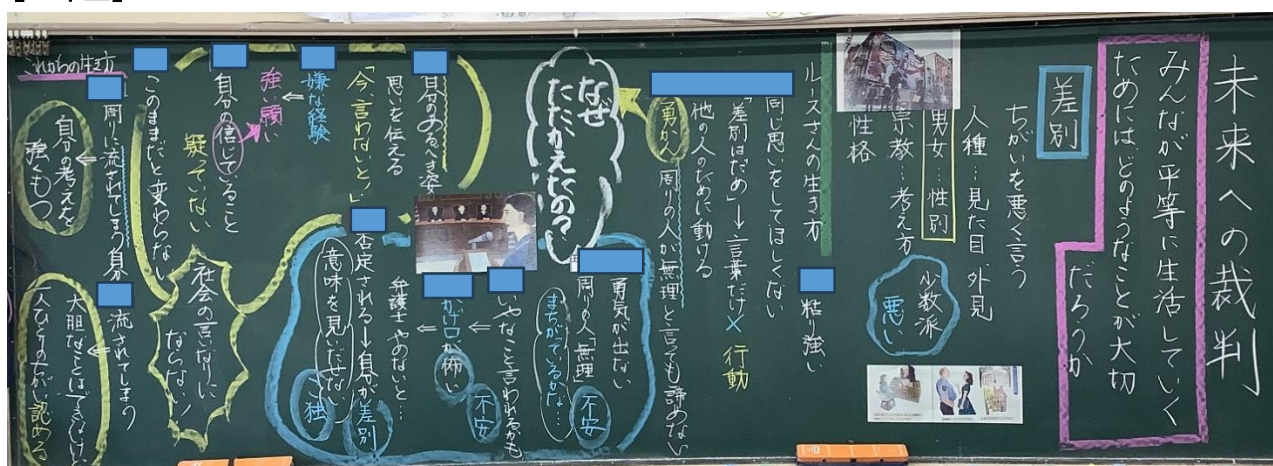 未来への裁判
みんなが平等に生活していく
ためには、どのようなことが大切
だろうか
差別
ちがいを悪く言う
人種…見た目 外見
男女…性別
宗教…考え方
性格
少数派
悪い
ルースさんの生き方
粘り強い
同じ思いをしてほしくない
「差別はだめ」→言葉だけ× 行動
他の人のために動ける
勇かん 周りの人が無理と言っても諦めない
なぜ
たたかえたの?
勇気が出ない
周りの人「無理」
まちがっているかな…
不安
いやなこと言われるかも
⇐
が怖い
不安
⇐
弁護士やのないと…
否定される→自分が差別
意味を見いだせない
こ独
自分のあるべき姿
思いを伝える
「今、言わないと!」
嫌な経験
⇐
強い願い
自分の信じていること
疑っていない
このままだと変わらない
社会の言いなりに
ならない!
これからの生き方
周りに流されてしまう自分
⇐
自分の考えを
強くもつ
流されてしまう
⇐
大胆なことはできないけど
一人ひとりのちがい認める